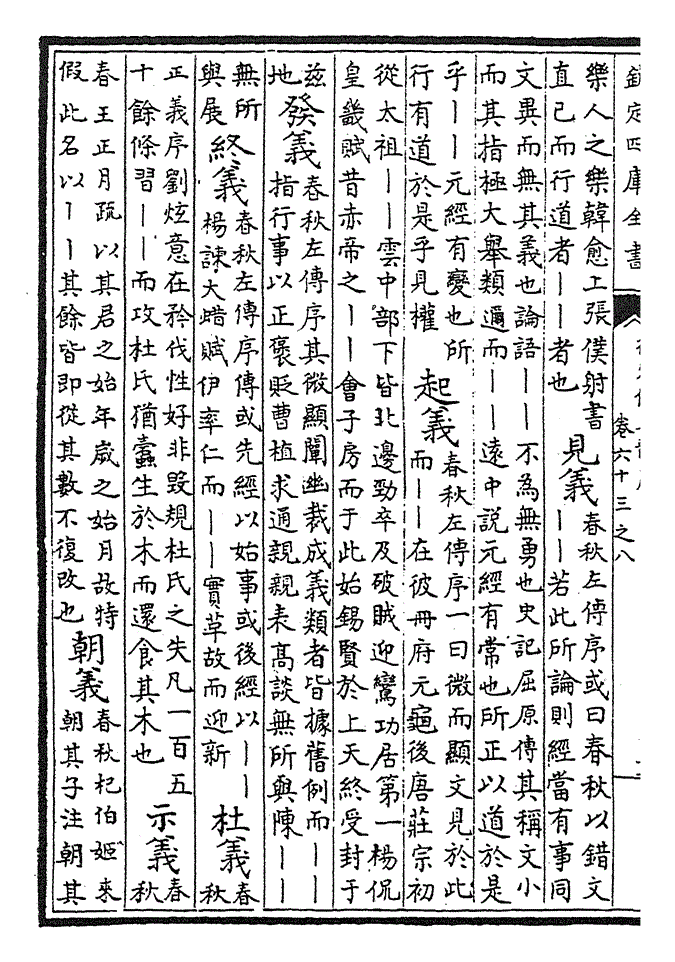 欽定四庫全書
卷六十三之八
樂人之樂韓愈上張僕射書
直己而行道者丨丨者也
見義
春秋左傳序或曰春秋以錯文
丨丨若此所論則經當有事同
文異而無其義也論語丨丨不為無勇也史記屈原傳其稱文小
而其指極大舉類邇而丨丨遠中說元經有常也所正以道於是
乎丨丨元經有變也所
行有道於是乎見權
起義
春秋左傳序一曰微而顯文見於此
而丨丨在彼冊府元龜後唐莊宗初
從太祖丨丨雲中部下皆北邊勁卒及破賊迎鸞功居第一楊侃
皇畿賦昔赤帝之丨丨會子房而于此始錫賢於上天終受封于
茲
地
發義
春秋左傳序其微顯闡幽裁成義類者皆據舊例而丨丨
指行事以正褒貶曹植求通親親表高談無所與陳丨丨
無所
與展
終義
春秋左傳序傳或先經以始事或後經以丨丨
楊諫大蜡賦伊率仁而丨丨實草故而迎新
杜義
春
秋
正義序劉炫意在矜伐性好非毀規杜氏之失凡一百五
十餘條習丨丨而攻杜氏猶蠹生於木而還食其木也
示義
春
秋
春王正月疏以其君之始年歲之始月故特
假此名以丨丨其餘皆即從其數不復改也
朝義
春秋杞伯姬來
朝其子注朝其